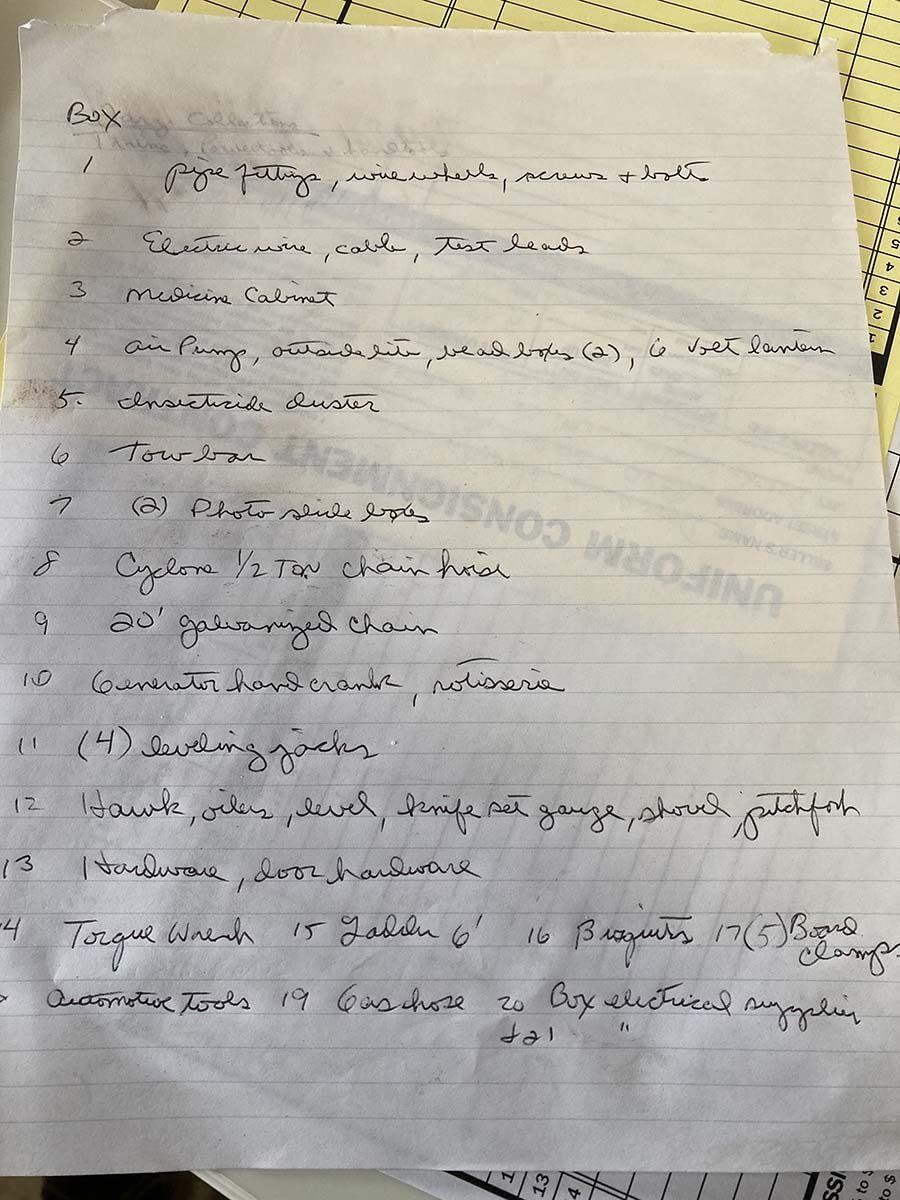 BOX
1 pipe fittings, wire wheels, screws + bolts
2 Electric wire, cable, test leads
3 medicine Cabinet
4 air Pump, outside lite, bead boxes (2), 6 Volt lantern
5. Insecticide duster
6 Tow bar
7 (2) Photo slide boxes
8 Cyclone 1/2 Ton chain hoist
9 20' galvanized chain
10 Generator hand crank, rotisserie
11 (4) leveling jacks
12 Hawk, oilers, level, knife set gauge, shovel, pitchfork
13 Hardware, door hardware
4 Torque Wrench 15 Ladder 6' 16 Briquets 17 (5) Board
clamps
Automotive tools 19 Gas hose 20 Box electrical supplies
+21 "
UNIFORM CONSIGNMENT
SELLER'S NAME